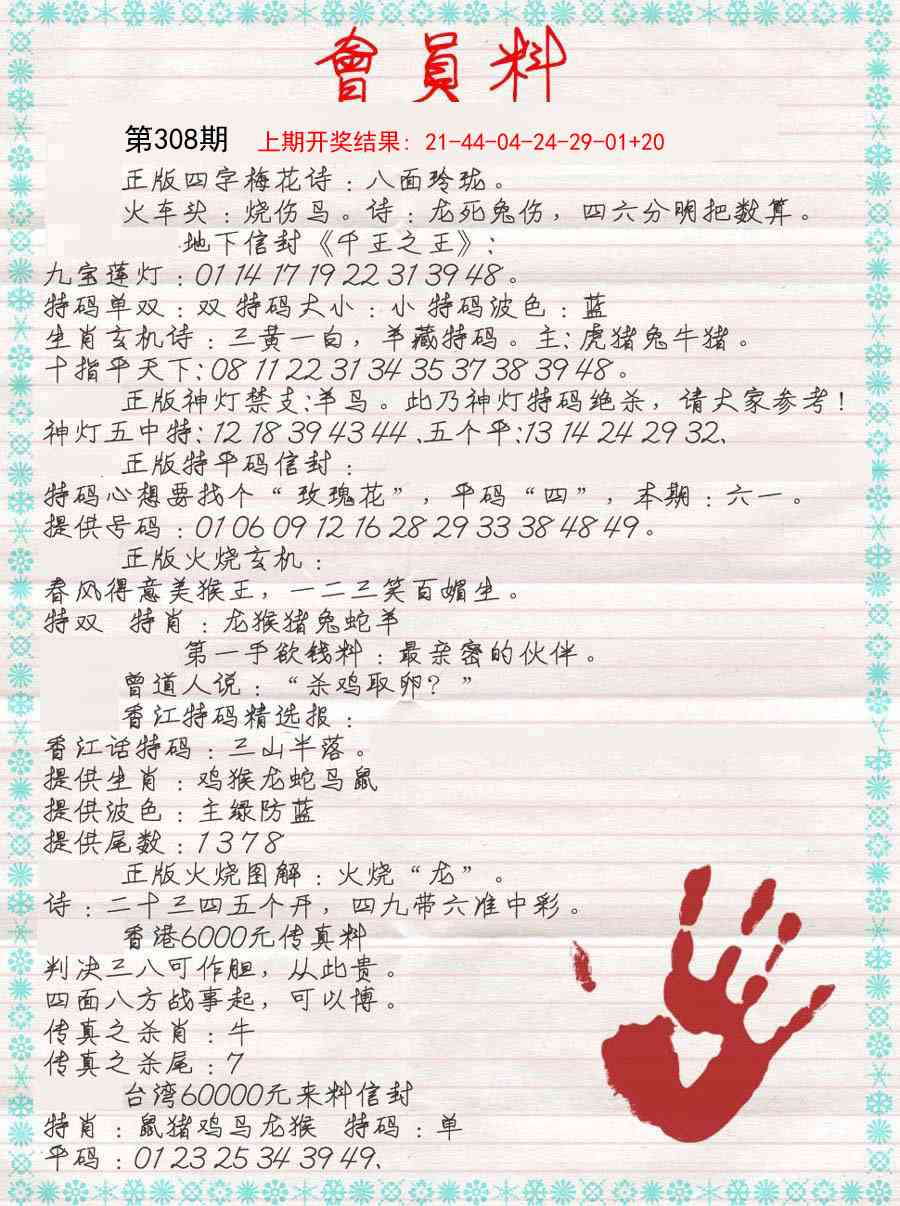 會員料
第308期 上期开奖结果: 21-44-04-24-29-01+20
正版四字梅花诗：八面玲珑。
火车头：烧伤鸟。诗：龙死兔伤，四六分明把数算。
地下信封《千王之王》：
九宝莲灯：01 14 17 19 22 31 39 48。
特码单双：双 特码大小：小 特码波色：蓝
生肖玄机诗：三黄一白，羊藏特码。主：虎猪兔牛猪。
十指平天下：08 11 22 31 34 35 37 38 39 48。
正版神灯禁支：羊鸟。此乃神灯特码绝杀，请大家参考！
神灯五中特：12 18 39 43 44、五个平：13 14 24 29 32、
正版特平码信封：
特码心想要找个“玫瑰花”，平码“四”，本期：六一。
提供号码：01 06 09 12 16 28 29 33 38 48 49。
正版火烧玄机：
春风得意美猴王，一二三笑百媚生。
特双 特肖：龙猴猪兔蛇羊
第一手欲钱料：最亲密的伙伴。
曾道人说：“杀鸡取卵？”
香江特码精选报：
香江话特码：三山半落。
提供生肖：鸡猴龙蛇马鼠
提供波色：主绿防蓝
提供尾数：1 3 7 8
正版火烧图解：火烧“龙”。
诗：二十三四五个开，四九带六准中彩。
香港6000元传真料
判决三八可作胆，从此贵。
四面八方战事起，可以博。
传真之杀肖：牛
传真之杀尾：7
台湾60000元来料信封
特肖：鼠猪鸡马龙猴 特码：单
平码：01 23 25 34 39 49、